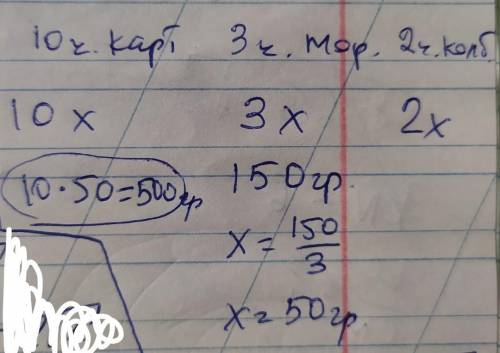 10 ч. карт. 3 ч. мор. 2 ч. колб.
10 x 3 x 2x
10 · 50 = 500 гр 150 гр.
x = 150/3
x = 50 гр.